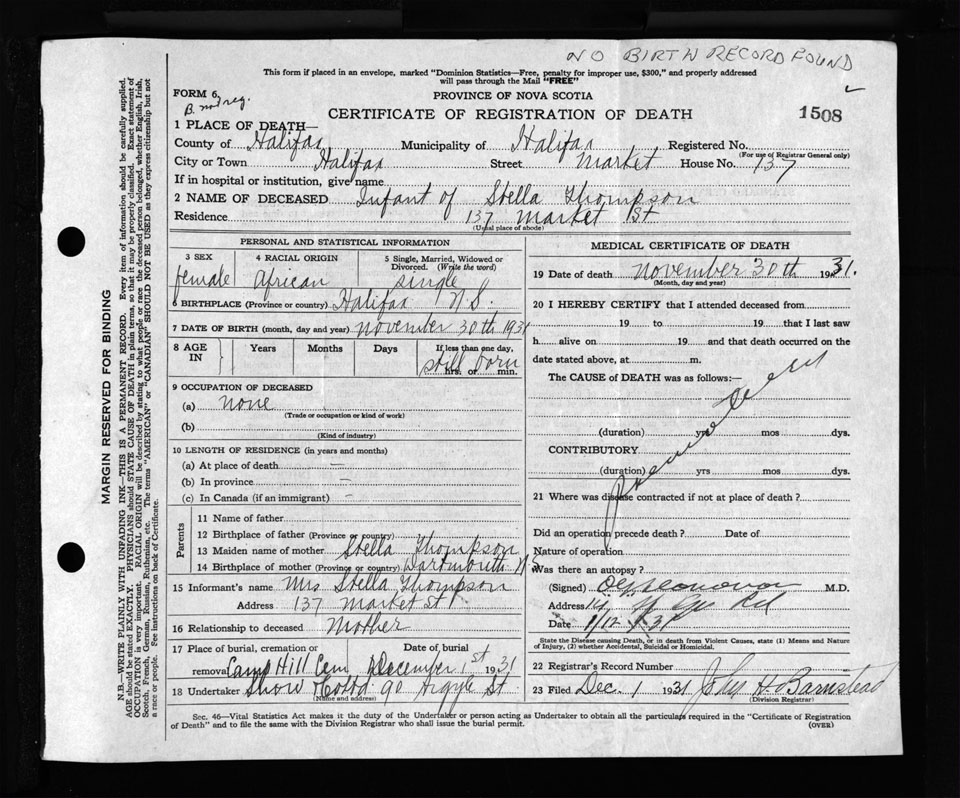 NO BIRTH RECORD FOUND
This form if placed in an envelope, marked "Dominion Statistics—Free, penalty for improper use, $300," and properly addressed
will pass through the Mail "FREE"
FORM 6
B. not reg.
PROVINCE OF NOVA SCOTIA
CERTIFICATE OF REGISTRATION OF DEATH
1508
1 PLACE OF DEATH—
County of Halifax Municipality of Halifax Registered No.
(For use of Registrar General only)
City or Town Halifax Street Market House No. 137
If in hospital or institution, give name
2 NAME OF DECEASED Infant of Stella Thompson
Residence 137 Market St
(Usual place of abode)
PERSONAL AND STATISTICAL INFORMATION
3 SEX 4 RACIAL ORIGIN 5 Single, Married, Widowed or
Divorced. (Write the word)
female African single
6 BIRTHPLACE (Province or country) Halifax N S.
7 DATE OF BIRTH (month, day and year) November 30th 1931
8 AGE IN Years Months Days If less than one day,
still born
hrs. or min.
9 OCCUPATION OF DECEASED
(a) none
(Trade or occupation or kind of work)
(b)
(Kind of industry)
10 LENGTH OF RESIDENCE (in years and months)
(a) At place of death —
(b) In province —
(c) In Canada (if an immigrant) —
Parents
11 Name of father
12 Birthplace of father (Province or country)
13 Maiden name of mother Stella Thompson
14 Birthplace of mother (Province or country) Dartmouth N S
15 Informant's name Mrs Stella Thompson
Address 137 Market St
16 Relationship to deceased Mother
17 Place of burial, cremation or Date of burial
removal Camp Hill Cem December 1st 1931
18 Undertaker Snow 90 Argyle St
(Name and address)
MEDICAL CERTIFICATE OF DEATH
19 Date of death November 30th 1931.
(Month, day and year)
20 I HEREBY CERTIFY that I attended deceased from
19 to 19 that I last saw
h alive on 19 and that death occurred on the
date stated above, at m.
The CAUSE of DEATH was as follows:—
(duration) yrs mos dys.
CONTRIBUTORY
(duration) yrs mos dys.
21 Where was disease contracted if not at place of death?
Did an operation precede death? Date of
Nature of operation
Was there an autopsy?
(Signed) M.D.
Address
Date 1/12/31
State the Disease causing Death, or in death from Violent Causes, state (1) Means and Nature
of Injury, (2) whether Accidental, Suicidal or Homicidal.
22 Registrar's Record Number
23 Filed Dec. 1 1931 John H. Barnstead
(Division Registrar)
Sec. 46—Vital Statistics Act makes it the duty of the Undertaker or person acting as Undertaker to obtain all the particulars required in the "Certificate of Registration
of Death" and to file the same with the Division Registrar who shall issue the burial permit.
(OVER)
MARGIN RESERVED FOR BINDING
N.B.—WRITE PLAINLY WITH UNFADING INK—THIS IS A PERMANENT RECORD. Every item of information should be carefully supplied.
AGE should be stated EXACTLY. PHYSICIANS should STATE CAUSE OF DEATH in plain terms, so that it may be properly classified. Exact statement of
OCCUPATION is very important. RACIAL ORIGIN will be described by stating to what people or race the deceased person belonged, whether English, Irish,
Scotch, French, German, Russian, Ruthenian, etc. The terms "AMERICAN" or "CANADIAN" SHOULD NOT BE USED as they express citizenship but not
a race or people. See instructions on back of Certificate.